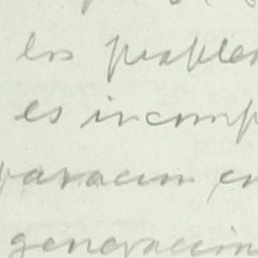 los proble
es incomp
paración en
generación